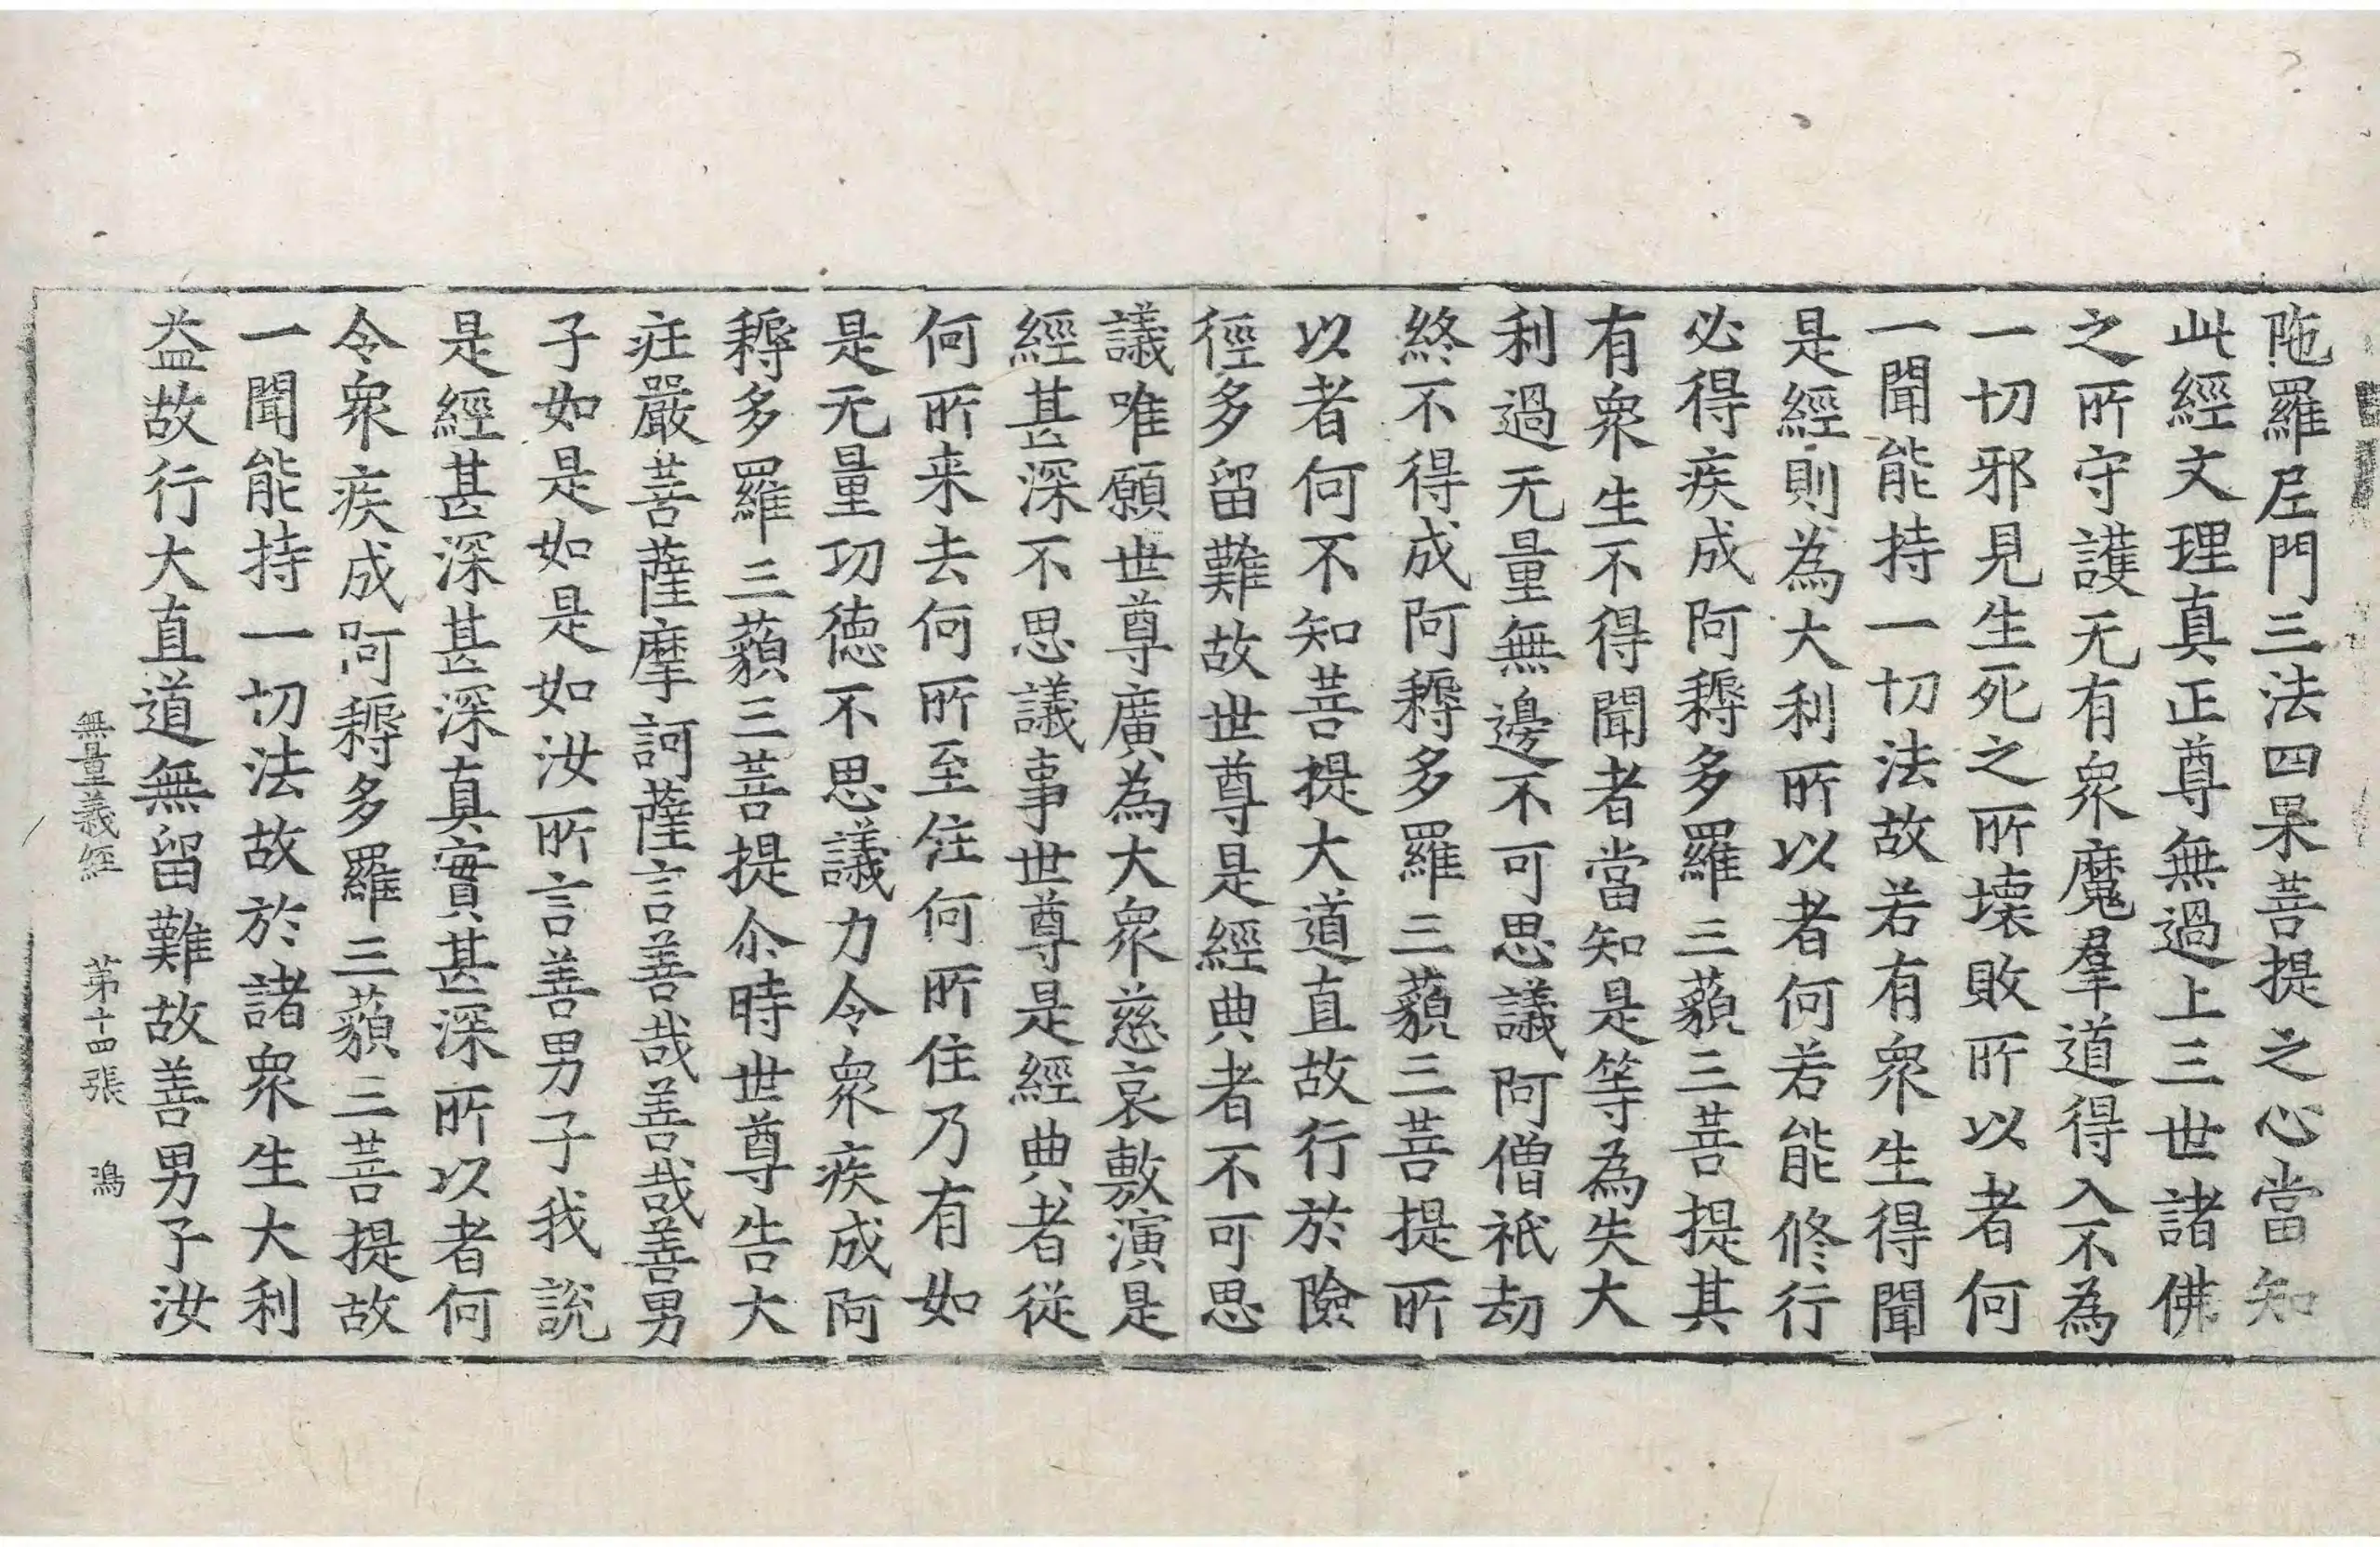 陁羅𡰱門三法四果菩提之心當知
此經文理真正尊無過上三世諸佛
之所守護无有衆魔羣道得入不為
一切邪見生死之所壊敗所以者何
一聞能持一切法故若有衆生得聞
是經則為大利所以者何若能修行
必得疾成阿耨多羅三藐三菩提其
有衆生不得聞者當知是等為失大
利過无量無邊不可思議阿僧祇劫
終不得成阿耨多羅三藐三菩提所
以者何不知菩提大道直故行於險
徑多留難故世尊是經典者不可思
議唯願世尊廣為大衆慈哀敷演是
經甚深不思議事世尊是經典者從
何所来去何所至住何所住乃有如
是无量功徳不思議力令衆疾成阿
耨多羅三藐三菩提尒時世尊告大
莊嚴菩薩摩訶薩言善哉善哉善男
子如是如是如汝所言善男子我説
是經甚深甚深真實甚深所以者何
令衆疾成阿耨多羅三藐三菩提故
一聞能持一切法故於諸衆生大利
益故行大直道無留難故善男子汝
無量義經 第十四張 鴻